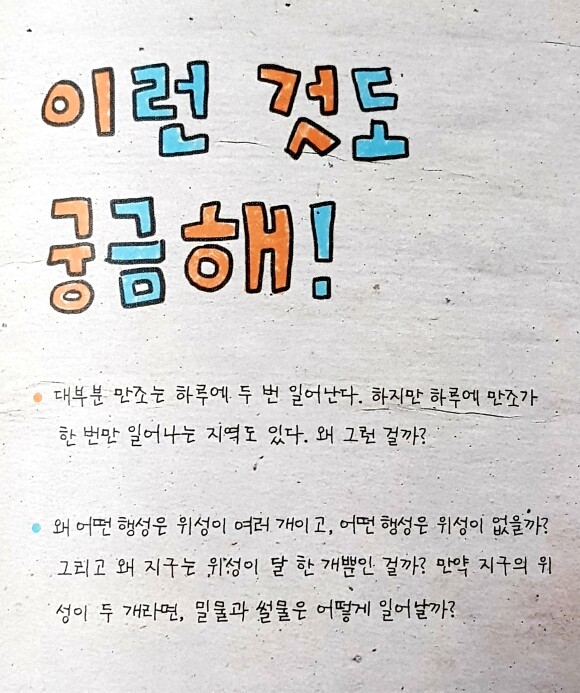 이런 것도
궁금해!
대부분 만조는 하루에 두 번 일어난다. 하지만 하루에 만조가
한 번만 일어나는 지역도 있다. 왜 그런 걸까?
왜 어떤 행성은 위성이 여러 개이고, 어떤 행성은 위성이 없을까?
그리고 왜 지구는 위성이 달 한 개뿐인 걸까? 만약 지구의 위
성이 두 개라면, 밀물과 썰물은 어떻게 일어날까?